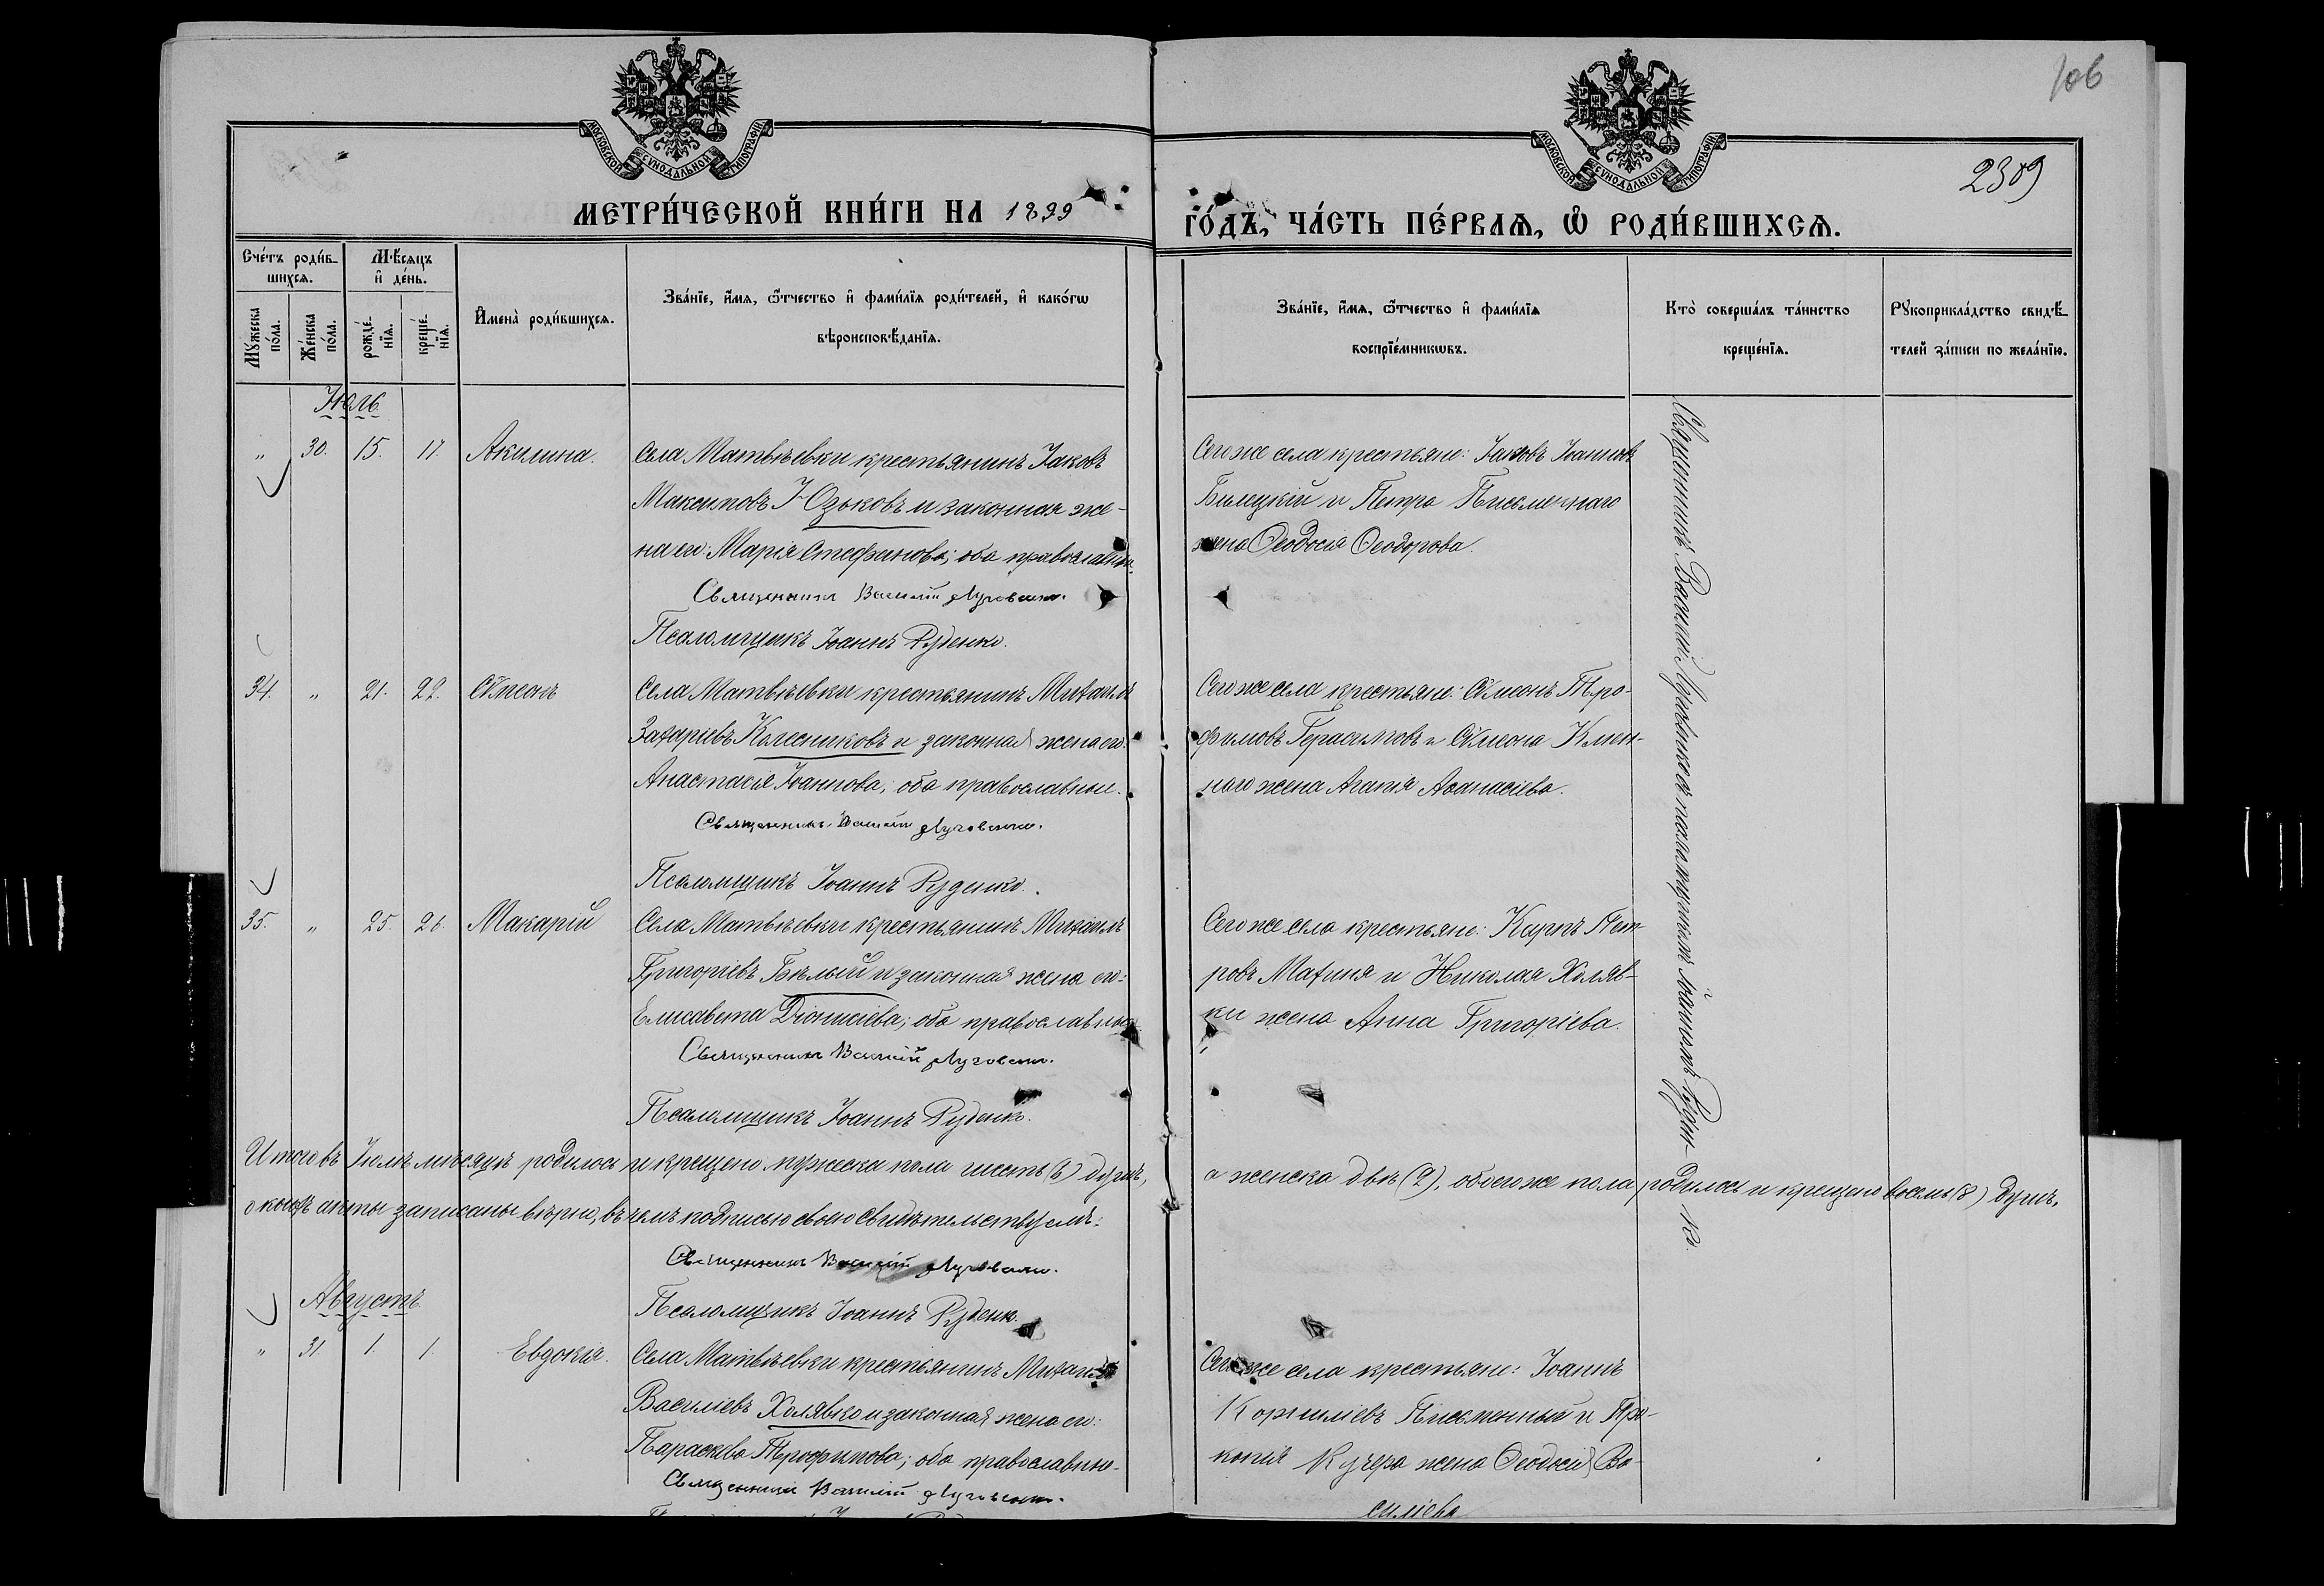 106
2309
МОСКОВСКОЙ СУНОДАЛЬНОЙ ТИПОГРАФІИ
МОСКОВСКОЙ СУНОДАЛЬНОЙ ТИПОГРАФІИ
МЕТРИ́ЧЕСКОЙ КНИ́ГИ НА 1899
ГО́ДЪ, ЧА́СТЬ ПЕ́РВАѦ, Ѽ РОДИ́ВШИХСѦ.
Сче́тъ роди́в-
шихсѧ.
Мꙋ́жеска по́ла.
Же́нска по́ла.
Мѣ́сѧцъ
и҆ де́нь.
рожде́-нїѧ.
креще́-нїѧ.
И҆мена̀ роди́вшихсѧ.
Зва́нїе, и҆́мѧ, ѻ҆́тчество и҆ фами́лїѧ роди́телей, и҆ како́гѡ
вѣроисповѣ́данїѧ.
Зва́нїе, и҆́мѧ, ѻ҆́тчество и҆ фами́лїѧ
воспрїе́мникѡвъ.
Кто̀ соверша́лъ та́инство
креще́нїѧ.
Рꙋкоприкла́дство свидѣ́-
телей за́писи по жела́нїю.
Іюль
" 30. 15. 17. Акилина.
Села Матвѣевки крестьянинъ Іаковъ
Максимовъ Юзьковъ и законная же-
на его: Марія Стефанова; оба православные.
Священникъ Василій Луговенко.
Псаломщикъ Іоаннъ Руденко.
Сего же села крестьяне: Іаковъ Іоанновъ
Билецкій и Петра Письменнаго
жена Ѳеодосія Ѳеодорова.
34. " 21. 22. Сѵмеонъ
Села Матвѣевки крестьянинъ Михаилъ
Захаріевъ Колесниковъ и законная жена его:
Анастасія Іоаннова; оба православные.
Священникъ Василій Луговенко.
Псаломщикъ Іоаннъ Руденко.
Сего же села крестьяне: Сѵмеонъ Тро-
фимовъ Герасимовъ и Сѵмеона Клен-
наго жена Агапія Аѳанасіева.
35. " 25. 26. Макарій
Села Матвѣевки крестьянинъ Михаилъ
Григоріевъ Бѣлый и законная жена его:
Елисавета Діонисіева; оба православные.
Священникъ Василій Луговенко.
Псаломщикъ Іоаннъ Руденко.
Сего же села крестьяне: Карпъ Пет-
ровъ Махиня и Николая Холяв-
ки жена Анна Григоріева.
Священникъ Василій Луговенко съ псаломщикомъ Іоанномъ Руден-ко.
Итого въ Іюлѣ мѣсяцѣ родилось и крещено мужеска пола шесть (6) душъ,
а женска двѣ (2), обоего же пола родилось и крещено восемь (8) душъ,
о коихъ акты записаны вѣрно, въ чемъ подписью своею свидѣтельствуемъ:
Священникъ Василій Луговенко.
Псаломщикъ Іоаннъ Руденко.
Августъ.
" 31. 1. 1. Евдокія.
Села Матвѣевки крестьянинъ Михаилъ
Василіевъ Холявко и законная жена его:
Параскева Трофимова; оба православные.
Священникъ Василій Луговенко.
Сего же села крестьяне: Іоаннъ
Корниліевъ Письменный и Про-
копія Кучера жена Ѳеодосія Ва-
силіева